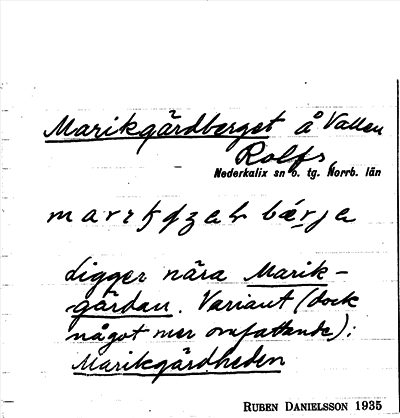 Marikgärdberget å Vallen
Rolfs,
Nederkalix sn o. tg. Norrb. län
ligger nära Marik-
gärdan. Variant (dock
något mer omfattande):
Marikgärdheden
RUBEN DANIELSSON 1935